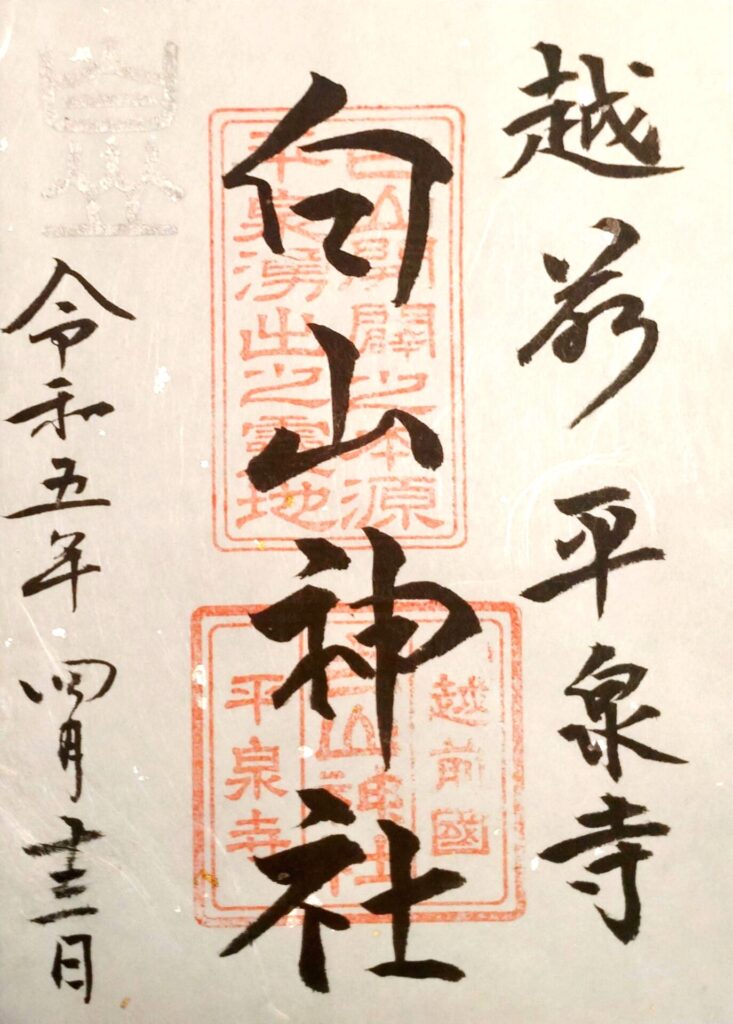 越前平泉寺
白山神社
白山開闢之本源
平泉湧出之靈地
越前國
白山神社
平泉寺
白山
令和五年四月十三日